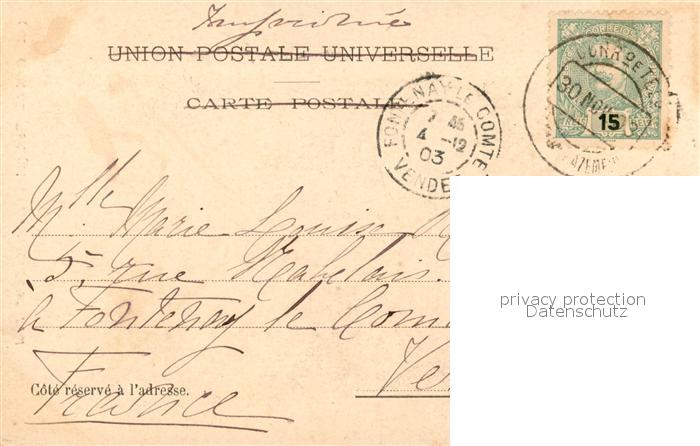 UNION POSTALE UNIVERSELLE
CARTE POSTALE
CORREIOS
15
30 NOV
FONTENAY-LE-COMTE
7 45
4 -12
03
VENDEE
Mlle Marie Louise
5, rue Rabelais.
à Fontenay le Com
Ve
France
Côté réservé à l'adresse.
privacy protection
Datenschutz